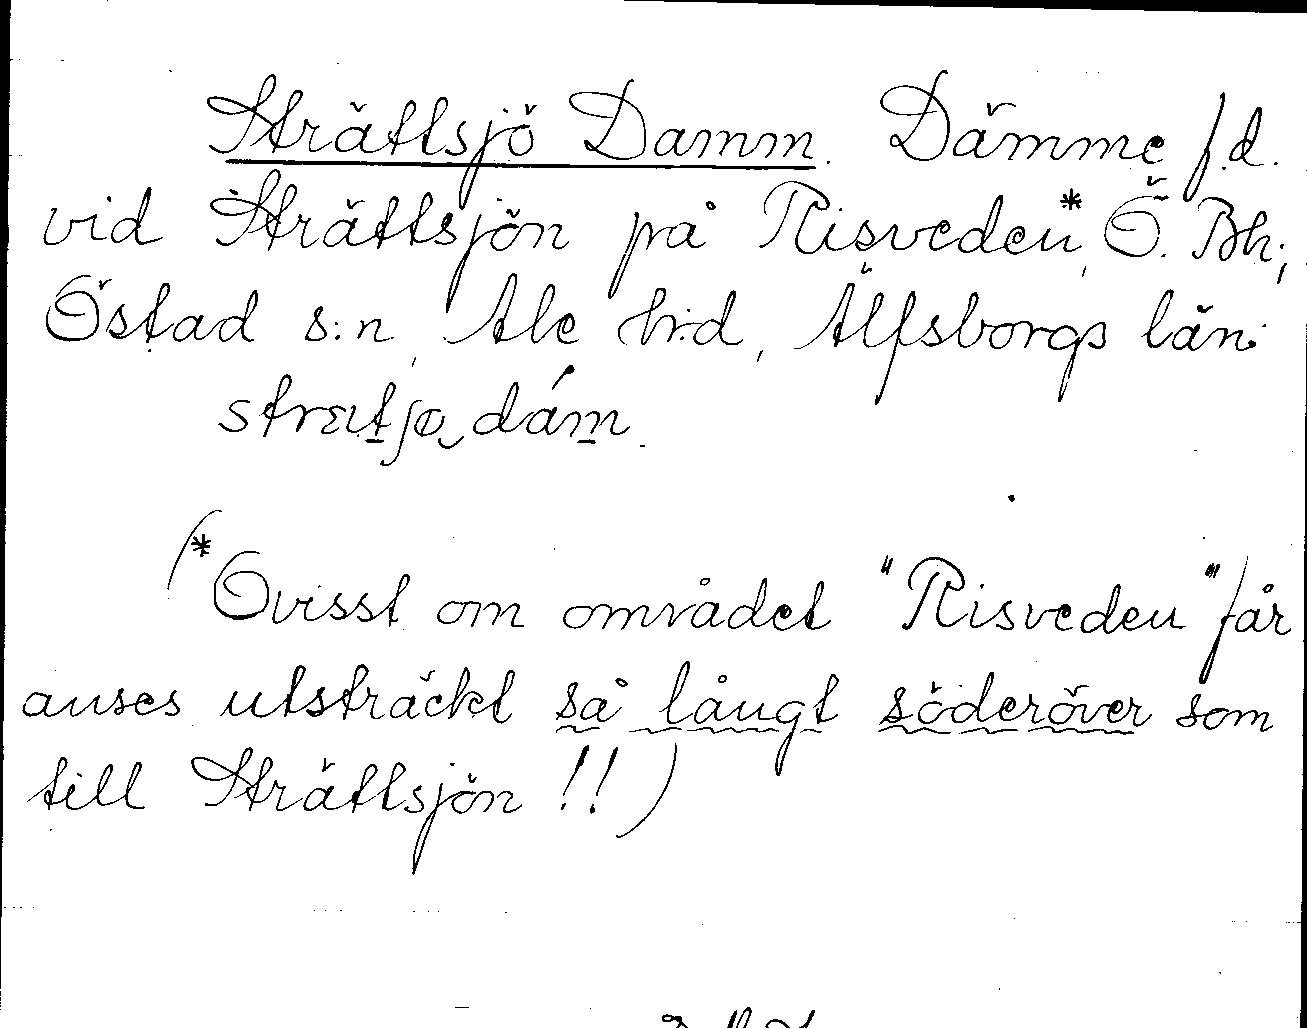 Strättsjö Damm. Dämme f.d.
vid Strättsjön på Risveden*, Ö. Bh;
Östad s:n, Ale hrd, Älfsborgs län.
(*Ovisst om området "Risveden" får
anses utsträckt så långt söderöver som
till Strättsjön!!)